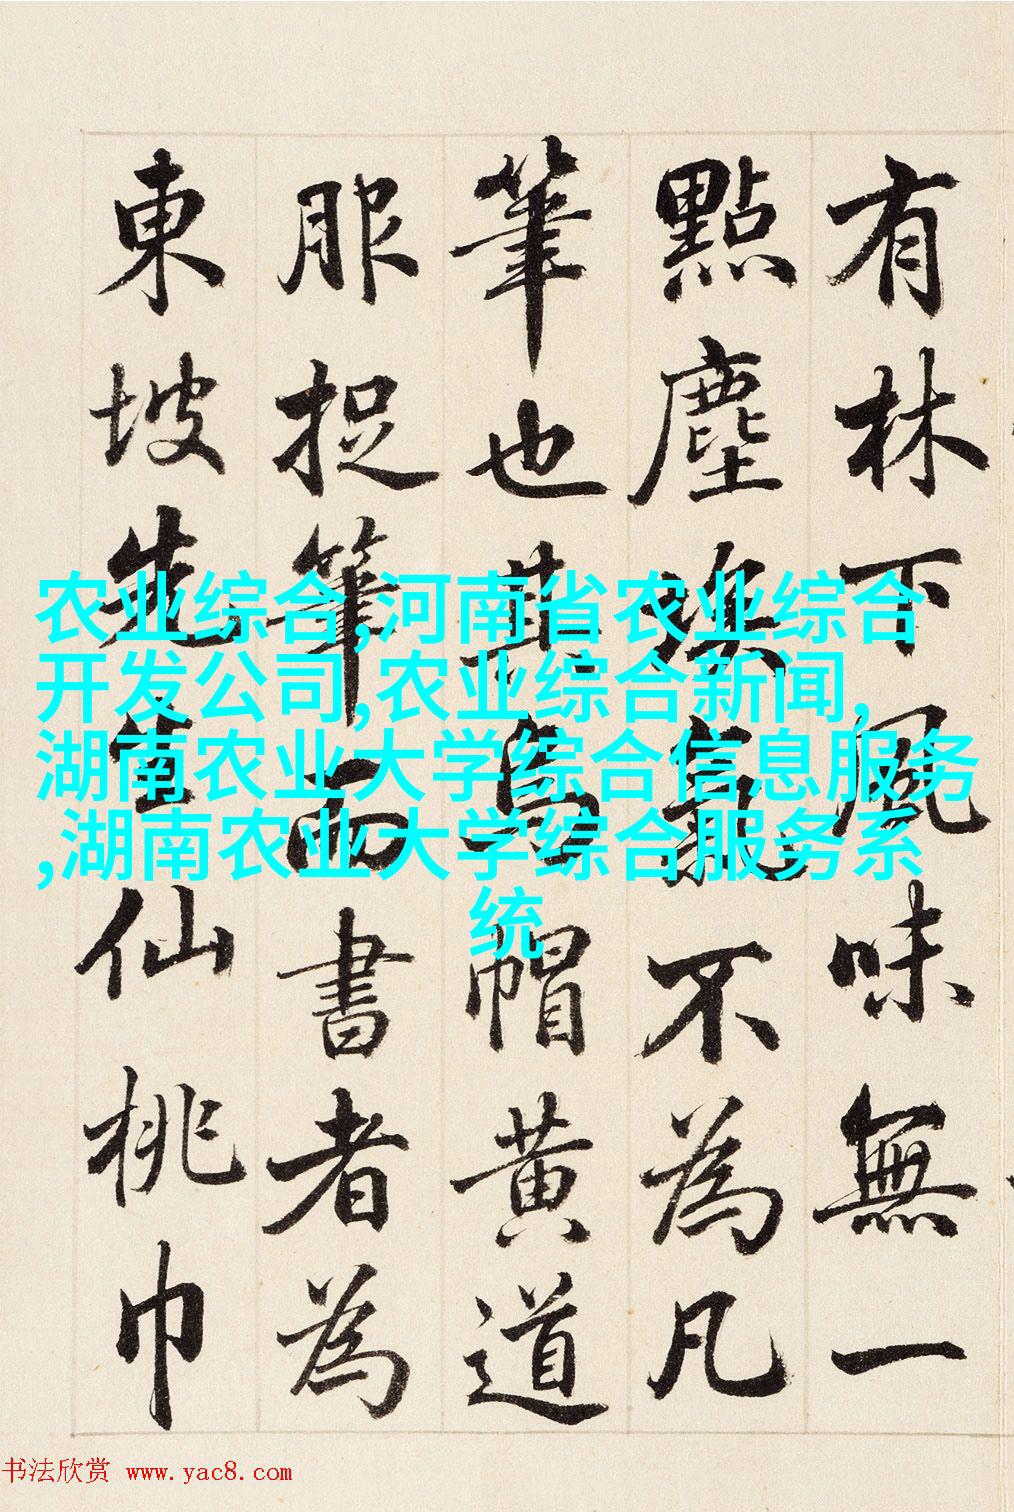 有林下風味無一
點塵埃氣不為凡
筆也其烏帽黃道
服捉筆而書者為
東坡先生仙桃巾
农业综合,河南省农业综合
开发公司,农业综合新闻,
湖南农业大学综合信息服务
,湖南农业大学综合服务系
统
书法欣赏 www.yac8.com